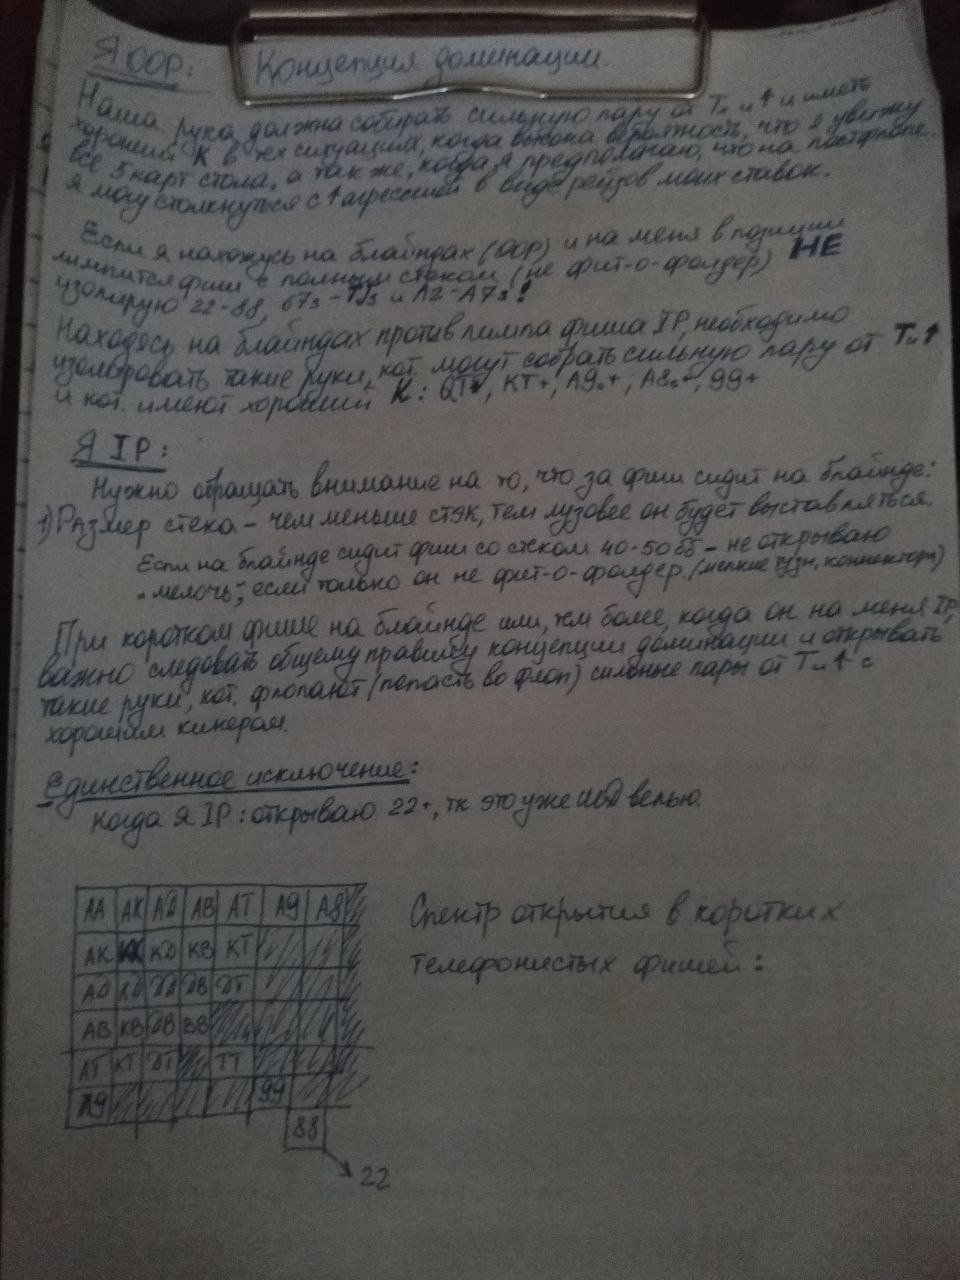 Я OOP: Концепция доминации.
Наша рука должна собирать сильную пару от Т и ↑ и иметь
хороший К в тех ситуациях, когда высока вероятность, что я увижу
все 5 карт стола, а также, когда я предполагаю, что на постфлопе
я могу столкнуться с ↑ агрессией в виде рейзов моих ставок.
Если я нахожусь на блайндах (OOP) и на меня в позиции
лимпится фиш с полным стеком (не фит-о-фолдер) НЕ
изолирую 22-88, 67s - и A2-A7s!
Находясь на блайндах против лимпа фиша IP, необходимо
изолировать такие руки, кот. могут собрать сильную пару от Т и ↑
и кот. имеют хороший К: QT+, KT+, A9o+, A8s+, 99+
Я IP:
Нужно обращать внимание на то, что за фиш сидит на блайнде:
1) Размер стека - чем меньше стэк, тем лузовее он будет выставляться.
Если на блайнде сидит фиш со стеком 40-50 бб - не открываю
"мелочь", если только он не фит-о-фолдер. (мелкие тузы, коннектора)
При коротком фише на блайнде или, тем более, когда он на меня IP,
важно следовать общему правилу концепции доминации и открывать
такие руки, кот. флопают (попасть во флоп) сильные пары от Т и ↑ с
хорошим кикером.
Единственное исключение:
Когда я IP: открываю 22+, тк это уже велью.
АА АК АД АВ АТ А9 А8
АК КК КД КВ КТ
АД КД ДД ДВ ДТ
АВ КВ ДВ ВВ
АТ КТ ДТ ТТ
А9 99
88
22
Спектр открытия в коротких
телефонистых фишей: